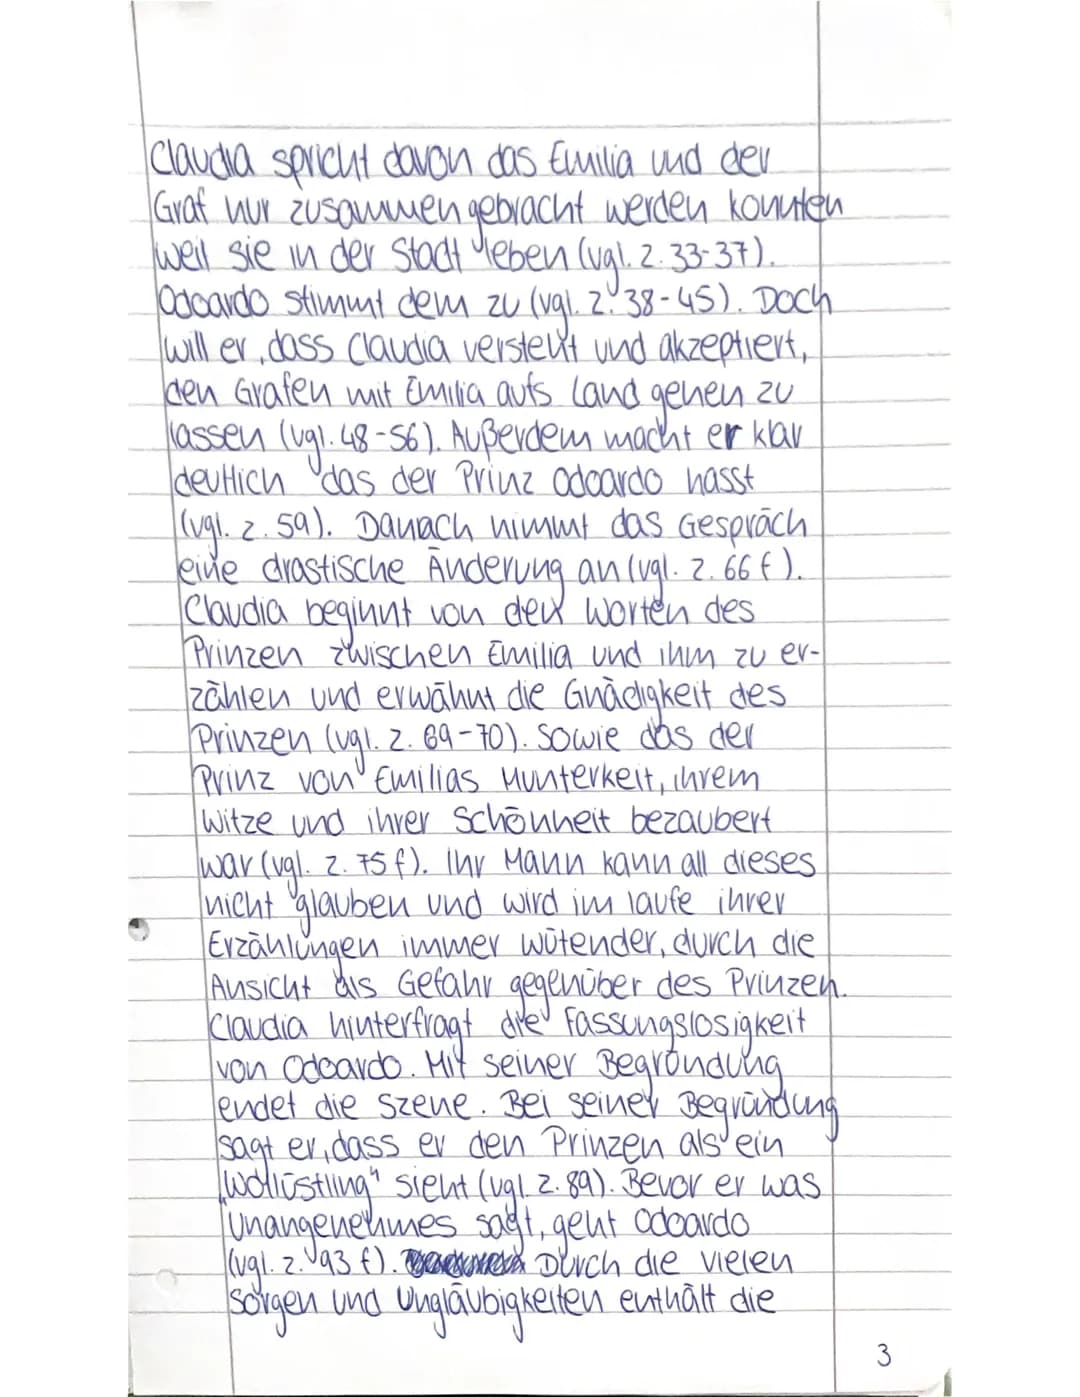 Claudia spricht davon das Emilia und der
Graf nur zusammengebracht werden konnten
weil sie in der Stadt leben (vgl. Z. 33-37).
Odoardo stimmt dem zu (vgl. Z. 38-45). Doch
will er, dass Claudia versteht und akzeptiert,
den Grafen mit Emilia aufs Land gehen zu
lassen (vgl. 48-56). Außerdem macht er klar
deutlich das der Prinz Odoardo hasst
(vgl. Z. 59). Danach nimmt das Gespräch
eine drastische Änderung an (vgl. Z. 66 f).
Claudia beginnt von den Worten des
Prinzen zwischen Emilia und ihm zu er-
zählen und erwähnt die Gnädigkeit des
Prinzen (vgl. Z. 69-70). Sowie das der
Prinz von Emilias Munterkeit, ihrem
Witze und ihrer Schönheit bezaubert
war (vgl. Z. 75 f). Ihr Mann kann all dieses
nicht glauben und wird im laufe ihrer
Erzählungen immer wütender, durch die
Ansicht als Gefahr gegenüber des Prinzen.
Claudia hinterfragt die Fassungslosigkeit
von Odoardo. Mit seiner Begründung
endet die Szene. Bei seiner Begründung
sagt er, dass er den Prinzen als ein
„Wollüstling" sieht (vgl. Z. 89). Bevor er was
Unangenehmes sagt, geht Odoardo
(vgl. Z. 93 f). Durch die vielen
Sorgen und Ungläubigkeiten enthält die
3